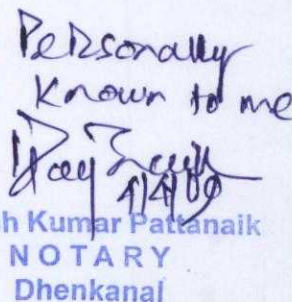 Personally
Known to me
1/4/09
h Kumar Pattanaik
NOTARY
Dhenkanal